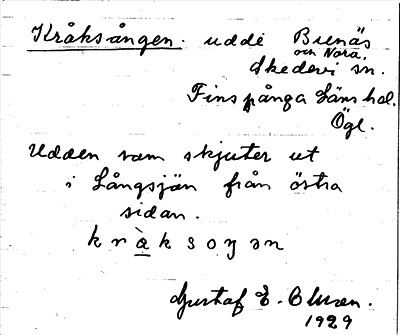 Kråksången. udde Brenäs
och Nora.
Skedevi sn.
Finspånga Läns hd.
Ögl.
Udden som skjuter ut
i Långsjön från östra
sidan.
Gustaf E. Olsson.
1929